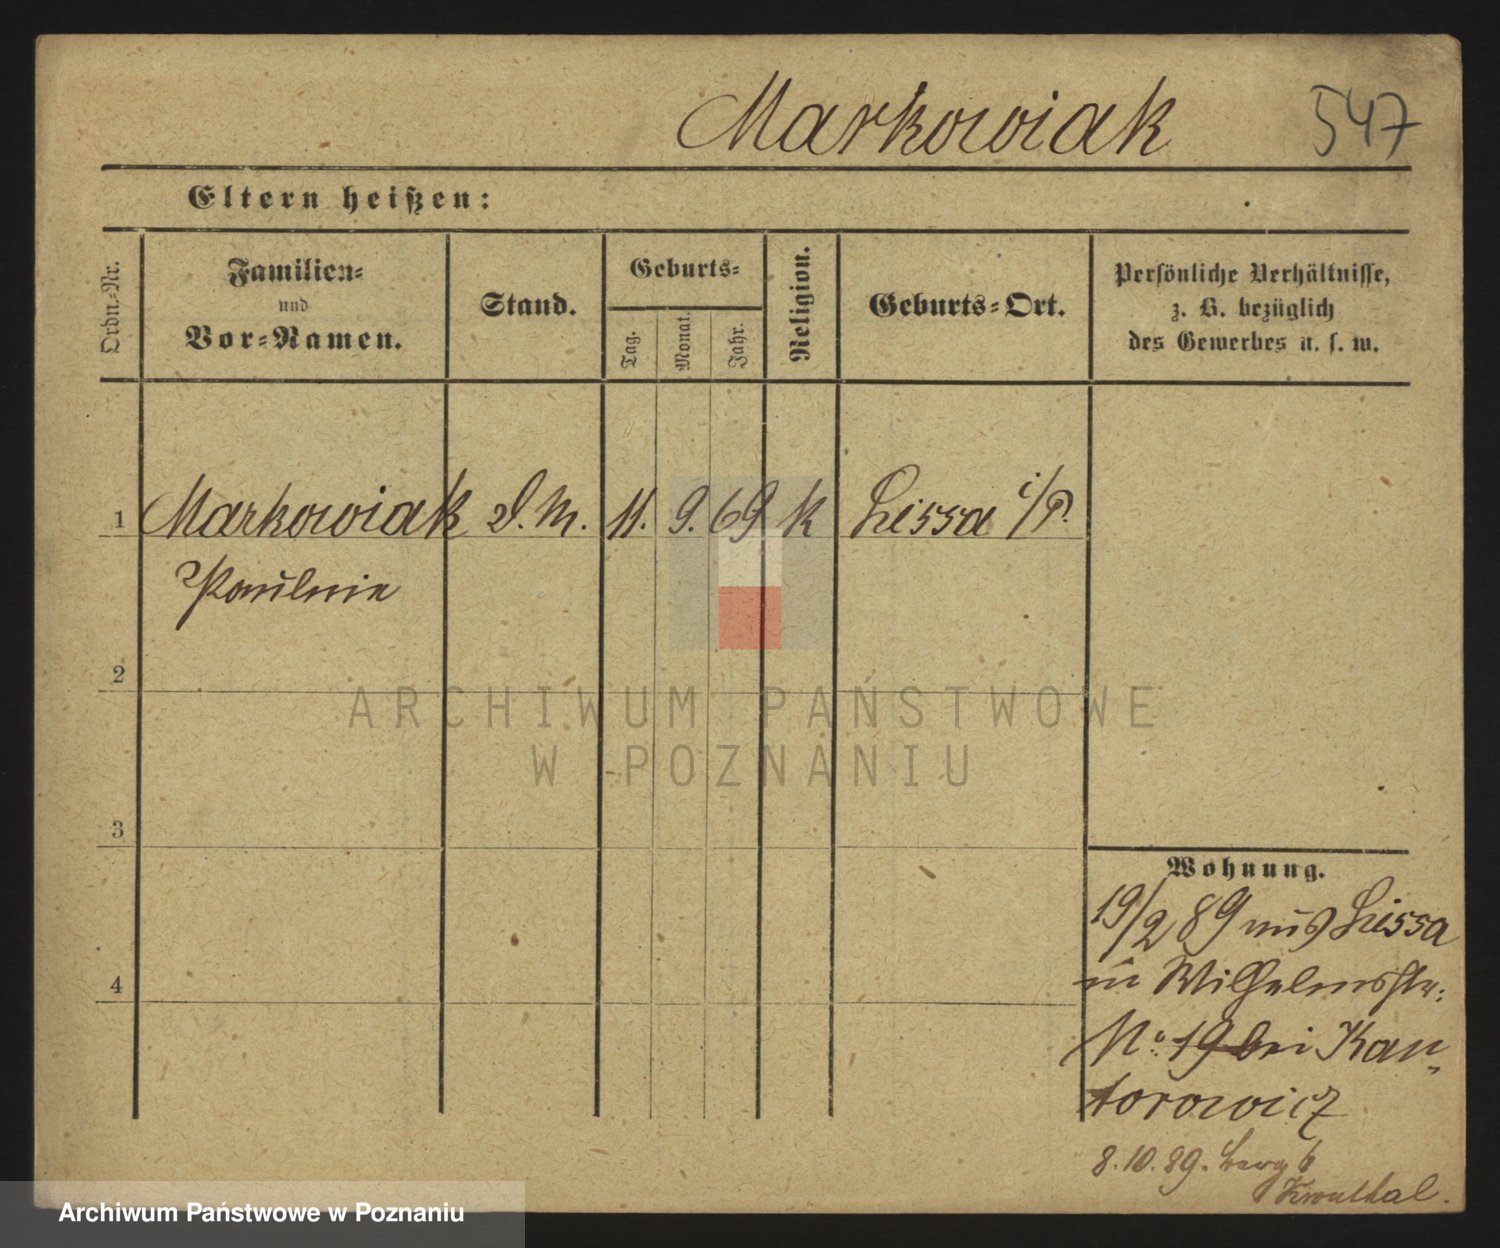 Markowiak 547
Eltern heißen:
Ordn.-Nr.
Familien-
und
Vor-Namen.
Stand.
Geburts-
Tag.
Monat.
Jahr.
Religion.
Geburts-Ort.
Persönliche Verhältnisse,
z. B. bezüglich
des Gewerbes u. s. w.
1 Markowiak D. M. 11. 9. 69 K Lissa i/P.
Pauline
2
3
4
ARCHIWUM PAŃSTWOWE
W POZNANIU
Wohnung.
19/2 89 aus Lissa
in Wilhelmsstr:
No. 19 bei Kan-
torowicz
8.10.89. Berg 6
Kronthal.
Archiwum Państwowe w Poznaniu